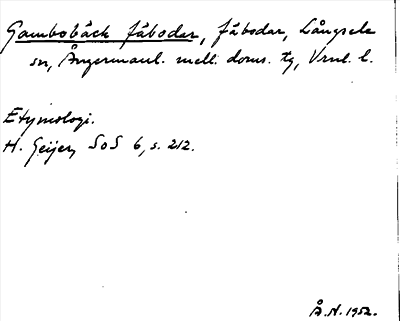 Gambobäck fäbodar, fäbodar, Långsele
sn, Ångermanl. mell. doms. tg, Vrnl. l.
Etymologi.
H. Geijer, SoS 6, s. 212.
Å.N. 1952.